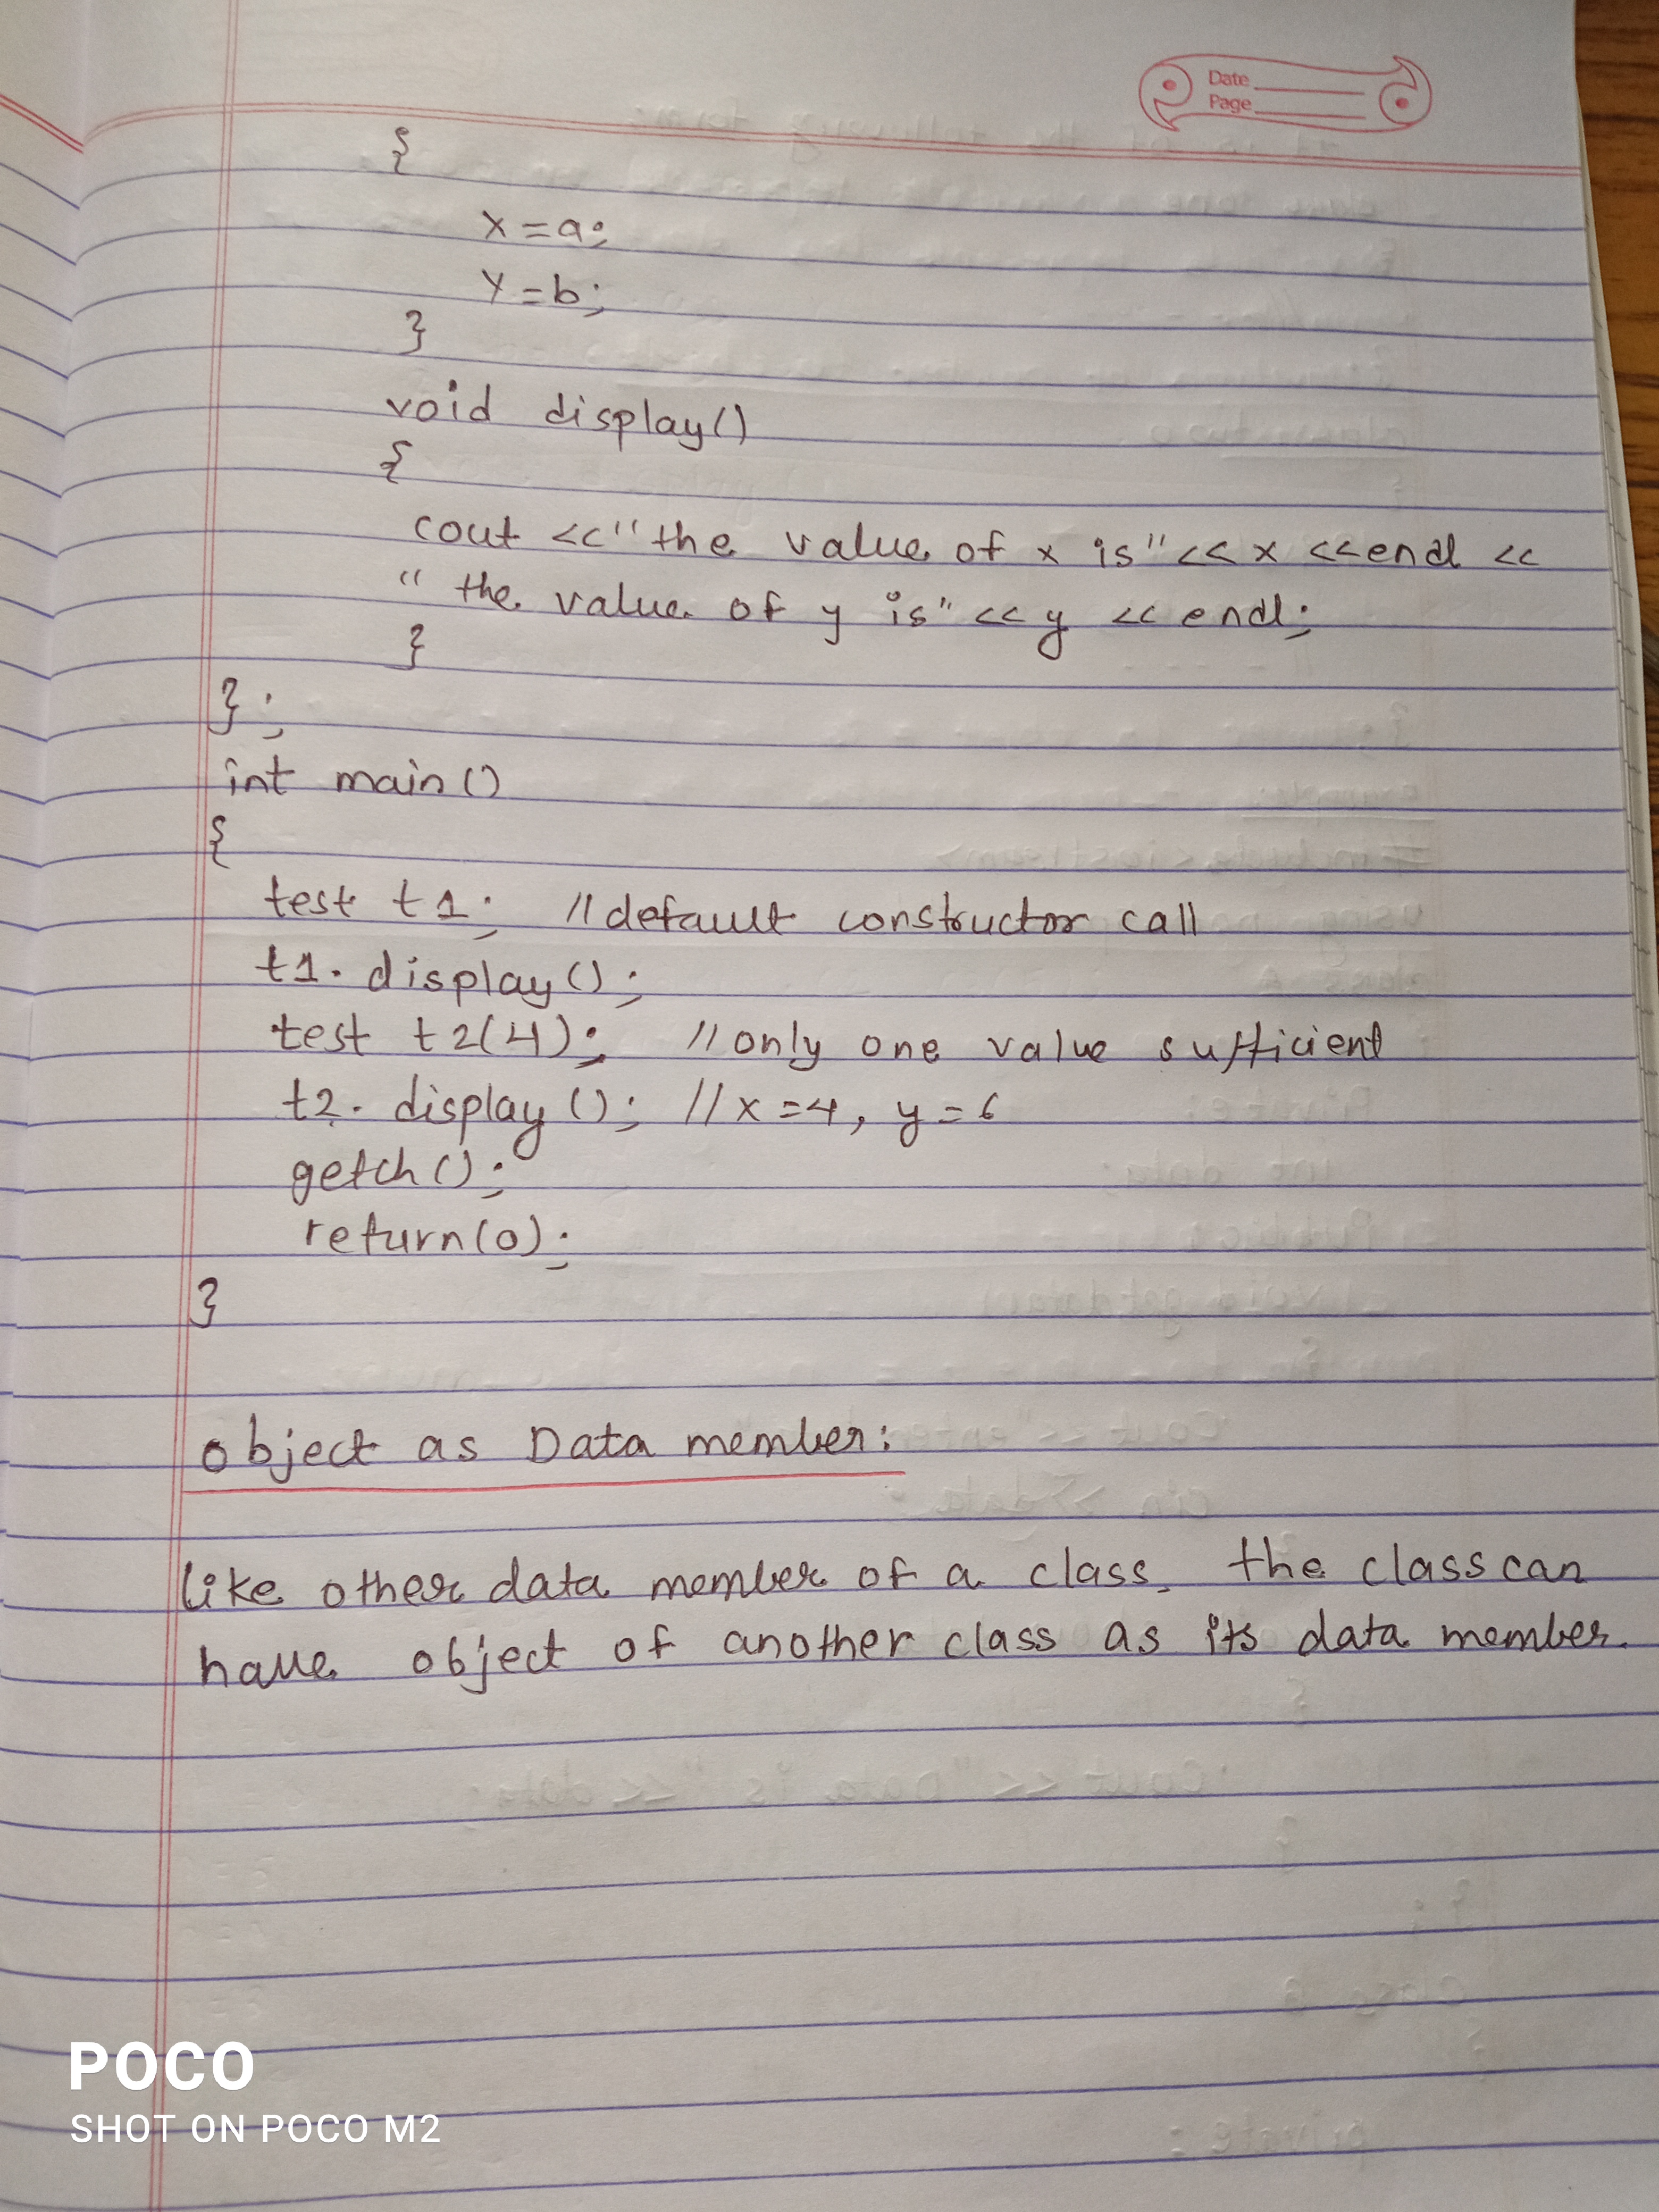 Date
Page
{
x=a;
y=b;
}
void display()
{
cout <<"the value of x is"<< x <<endl <<
"the value of y is"<<y << endl;
}
};
int main()
{
test t1; //default constructor call
t1. display();
test t2(4); //only one value sufficient
t2. display(); //x=4, y=6
getch();
return(0);
}
object as Data member:
like other data member of a class, the class can
have object of another class as its data member.
POCO
SHOT ON POCO M2